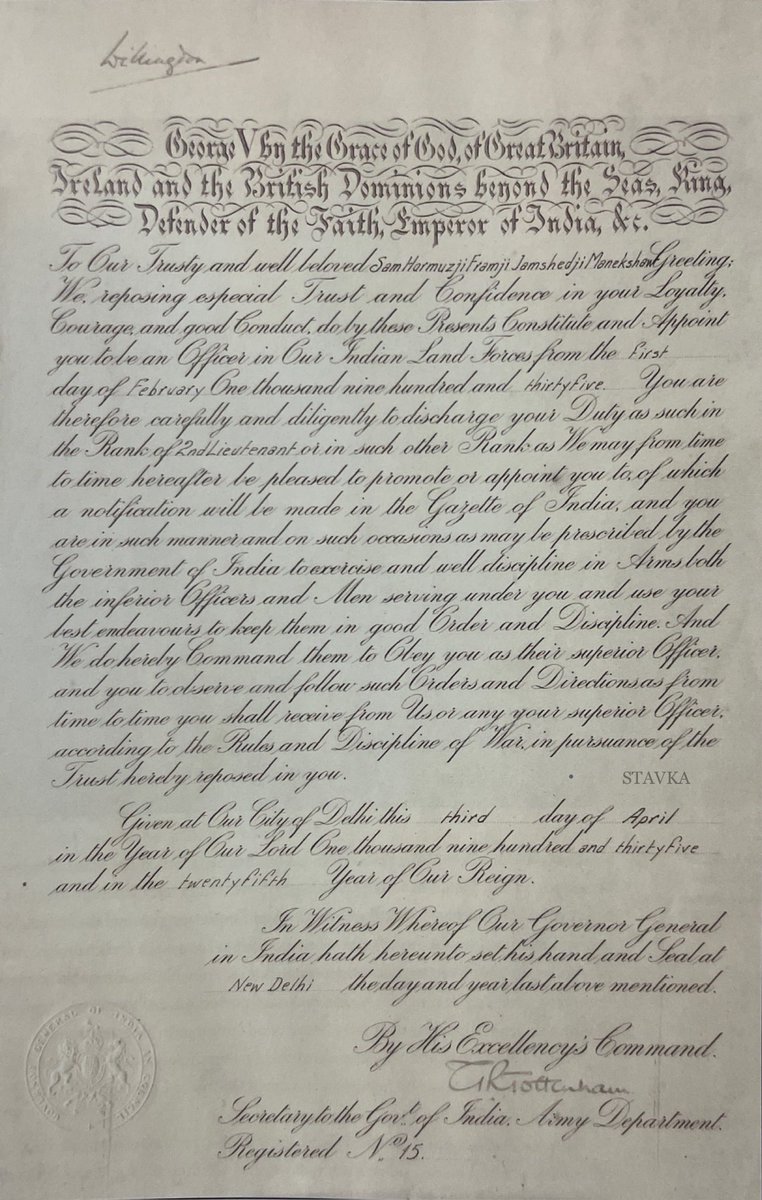 Willingdon
George V by the Grace of God, of Great Britain,
Ireland and the British Dominions beyond the Seas, King,
Defender of the Faith, Emperor of India, &c.
To Our Trusty and well beloved Sam Hormuzji Framji Jamshedji Manekshaw Greeting:
We, reposing especial Trust and Confidence in your Loyalty,
Courage, and good Conduct, do by these Presents Constitute and Appoint
you to be an Officer in Our Indian Land Forces from the first
day of February One thousand nine hundred and thirtyfive. You are
therefore carefully and diligently to discharge your Duty as such in
the Rank of 2nd Lieutenant or in such other Rank as We may from time
to time hereafter be pleased to promote or appoint you to, of which
a notification will be made in the Gazette of India, and you
are in such manner and on such occasions as may be prescribed by the
Government of India to exercise and well discipline in Arms both
the inferior Officers and Men serving under you and use your
best endeavours to keep them in good Order and Discipline. And
We do hereby Command them to Obey you as their superior Officer,
and you to observe and follow such Orders and Directions as from
time to time you shall receive from Us, or any your superior Officer,
according to the Rules and Discipline of War, in pursuance of the
Trust hereby reposed in you.
STAVKA
Given at Our City of Delhi this third day of April
in the Year of Our Lord One thousand nine hundred and thirtyfive
and in the twentyfifth Year of Our Reign.
In Witness Whereof Our Governor General
in India hath hereunto set his hand and Seal at
New Delhi the day and year last above mentioned.
By His Excellency's Command.
GRFTottenham
Secretary to the Govt. of India, Army Department.
Registered No. 15.
GOVERNOR GENERAL OF INDIA IN COUNCIL